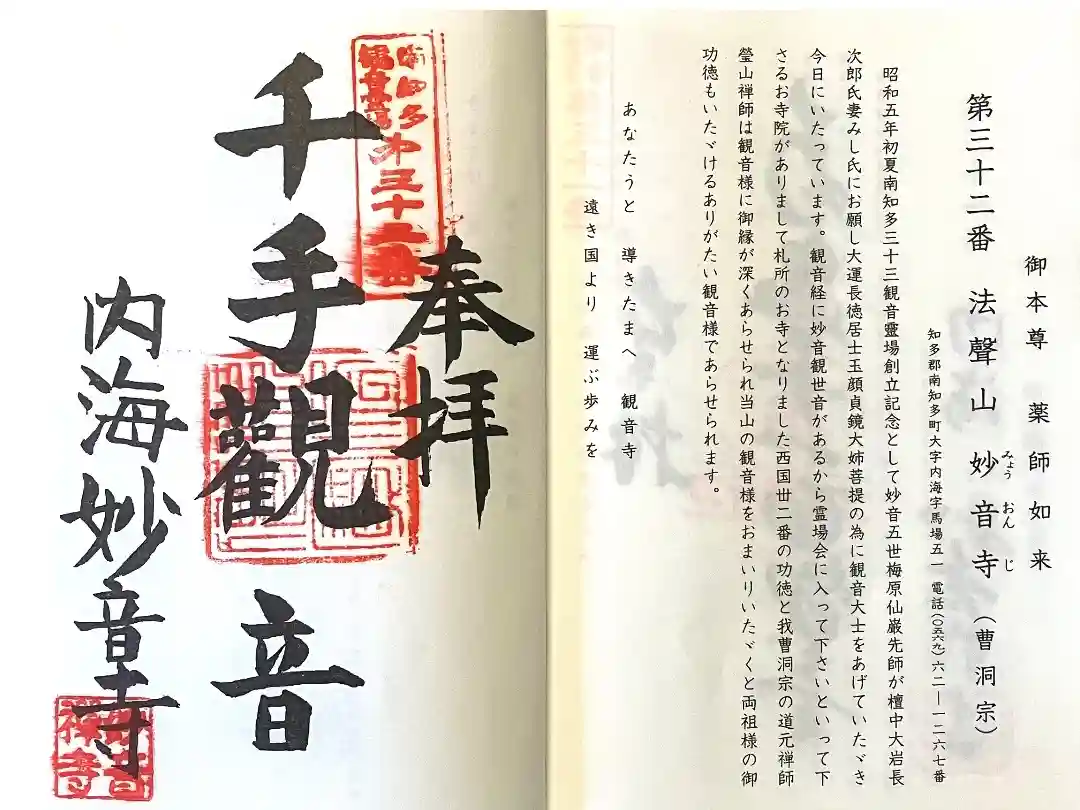 御本尊 薬師如来
第三十二番 法聲山 妙音寺(曹洞宗)
みょうおんじ
知多郡南知多町大字内海字馬場五一 電話(〇五六九)六二―一二六七番
昭和五年初夏南知多三十三観音霊場創立記念として妙音五世梅原仙巌先師が檀中大岩長
次郎氏妻みし氏にお願し大運長徳居士玉顔貞鏡大姉菩提の為に観音大士をあげていたゞき
今日にいたっています。観音経に妙音観世音があるから霊場会に入って下さいといって下
さるお寺院がありまして札所のお寺となりました西国丗二番の功徳と我曹洞宗の道元禅師
瑩山禅師は観音様に御縁が深くあらせられ当山の観音様をおまいりいたゞくと両祖様の御
功徳もいたゞけるありがたい観音様であらせられます。
あなたうと 導きたまへ 観音寺
遠き国より 運ぶ歩みを
奉拝
南知多
第三十二番
千手觀音
内海妙音寺